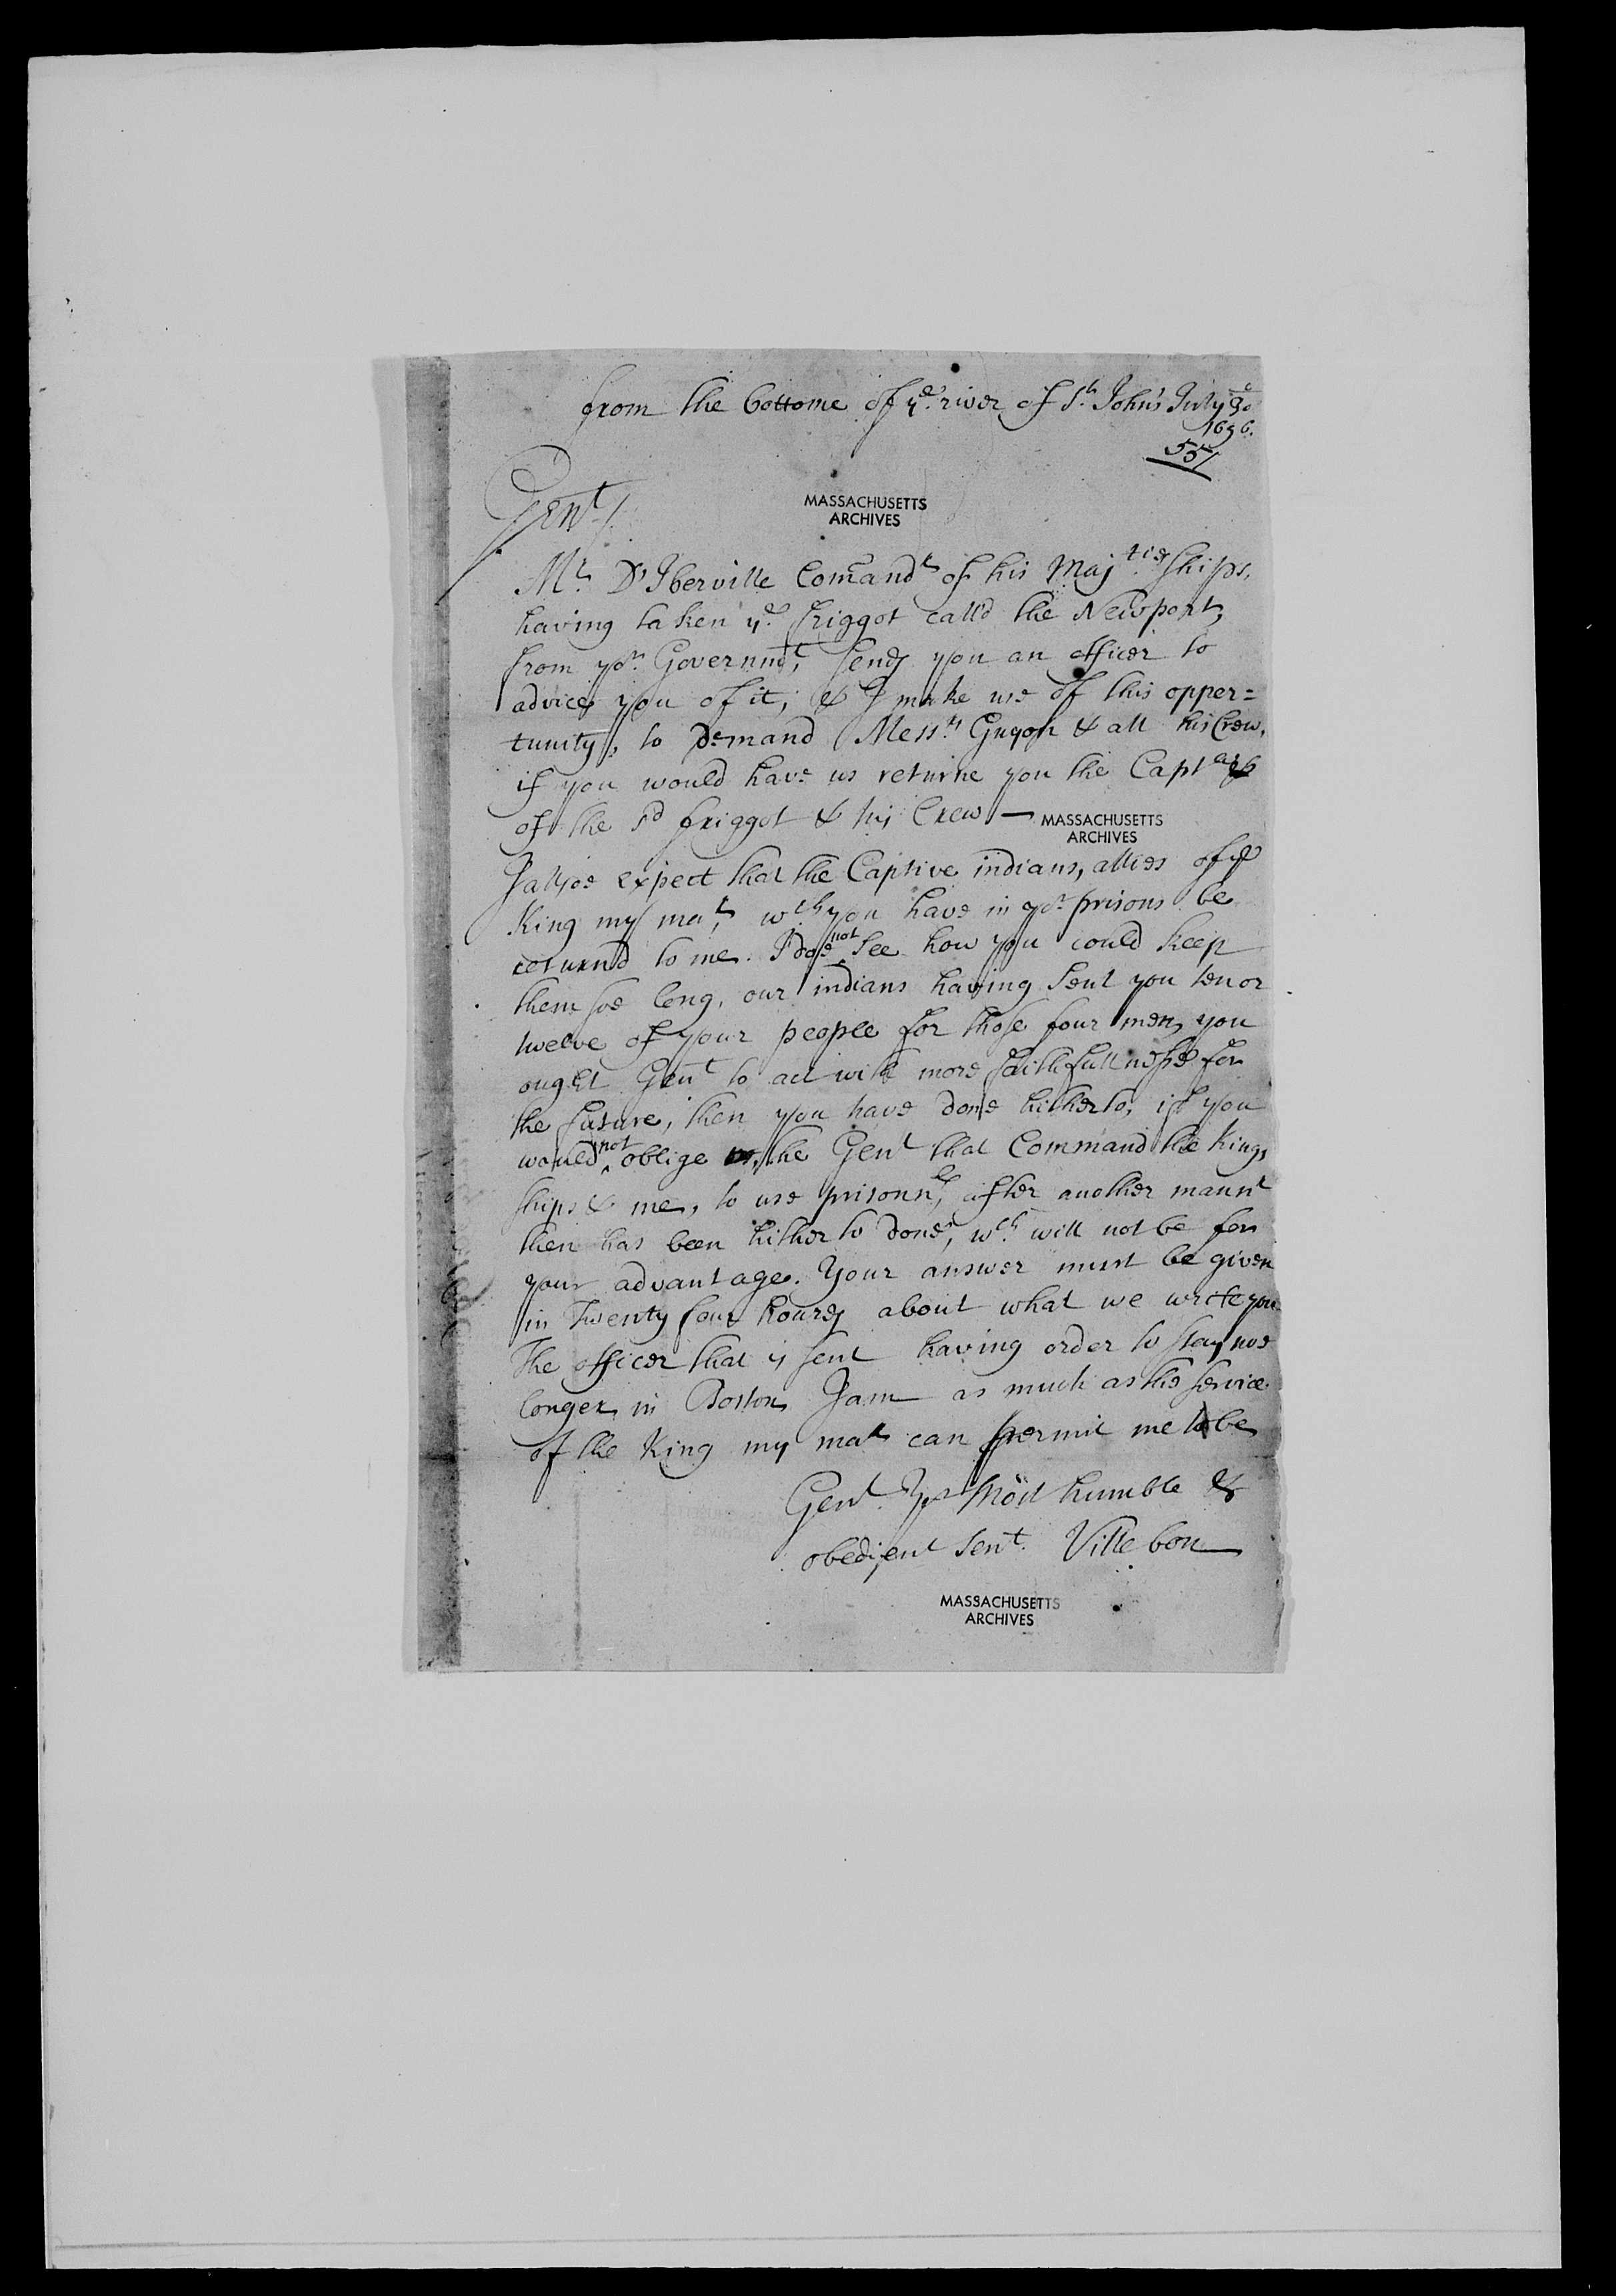 from the bottome of ye. river of St. John's July
1696.
551
Gent.
MASSACHUSETTS
ARCHIVES
Mr. D'Iberville Comandr of his Majties ships,
having taken ye. friggot call'd the Newport,
from yor. Governmt, sends you an officer to
advice you of it, & I make use of this opper=
tunity, to Demand Messrs Guyon & all his Crew,
if you would have us returne you the Capt
of the sd friggot & his Crew —
MASSACHUSETTS
ARCHIVES
I allsoe expect that the Captive indians, allies of ye
King my mar, wch you have in yor prisons be
returnd to me. I doe not see how you could keep
them soe long, our indians having sent you ten or
twelve of your people for those four men, you
ought Gent to act with more faithfullnesse for
the future, then you have done hitherto, if you
would not oblige the Gent that Command the Kings
ships & me, to use prisonrs, after another mannr
then has been hitherto done, wch. will not be for
your advantage. Your answer must be given
in Twenty four hours about what we write you
The officer that is sent having order to stay noe
longer in Boston, I am as much as the service
of the King my mar can permit me to be
Gent. Yor Most humble &
obedient servt. Villebon
MASSACHUSETTS
ARCHIVES